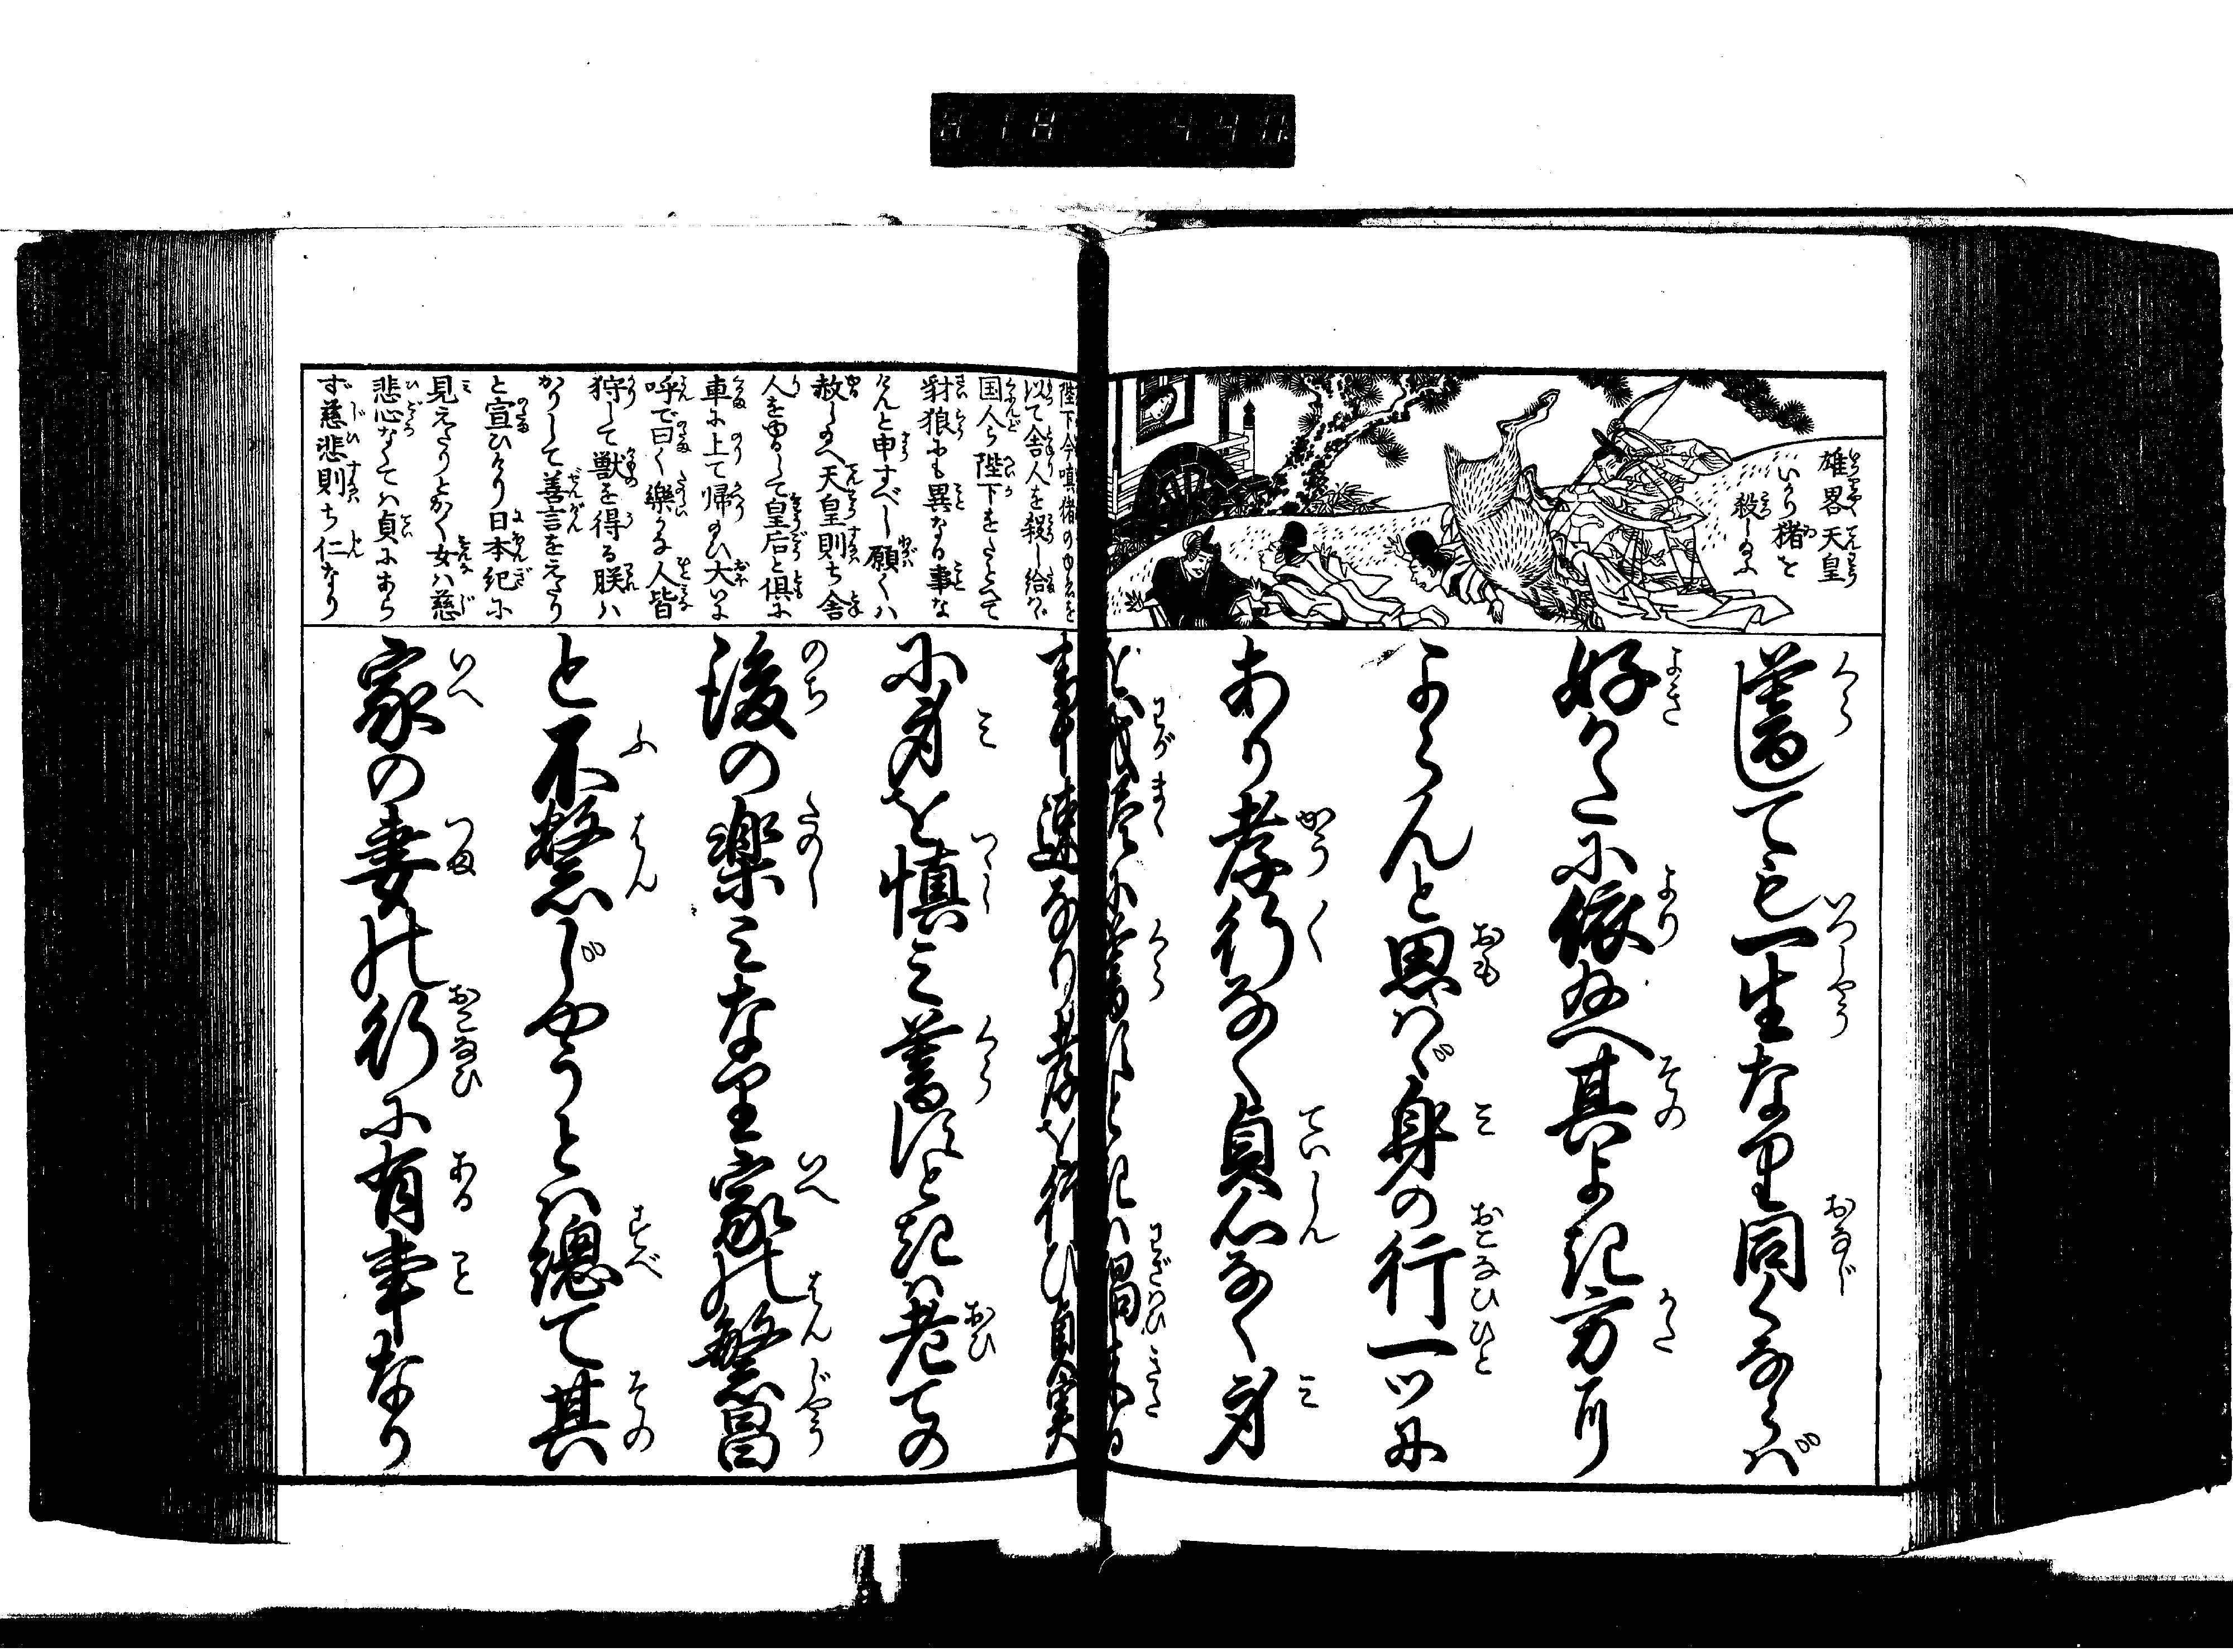 雄畧天皇
いかり猪を
殺し給ふ
薯して也一生な里同くならば
好かたに依給へ其よき方に
よらんと思はゞ身の行一ツに
あり孝行なく貞心なく身
事速なり孝を行ひ貞実
に身を慎み暮すときは老ての
後の楽みな里家の繁昌
と不繁じやうとは總て其
家の妻の行に有事なり
陛下今嗔猪のゆゑを
以て舎人を殺し給はゞ
国人ら陛下をたとへて
豺狼にも異なる事な
けんと申すべし願くは
赦し給へ天皇則ち舎
人をゆるして皇后と倶に
車に上て帰給ひ大いに
呼で曰く樂かな人皆
狩して獣を得る朕は
かりして善言をえたり
と宣ひけり日本紀に
見えたりとかく女は慈
悲心なくては貞にあら
ず慈悲則ち仁なり